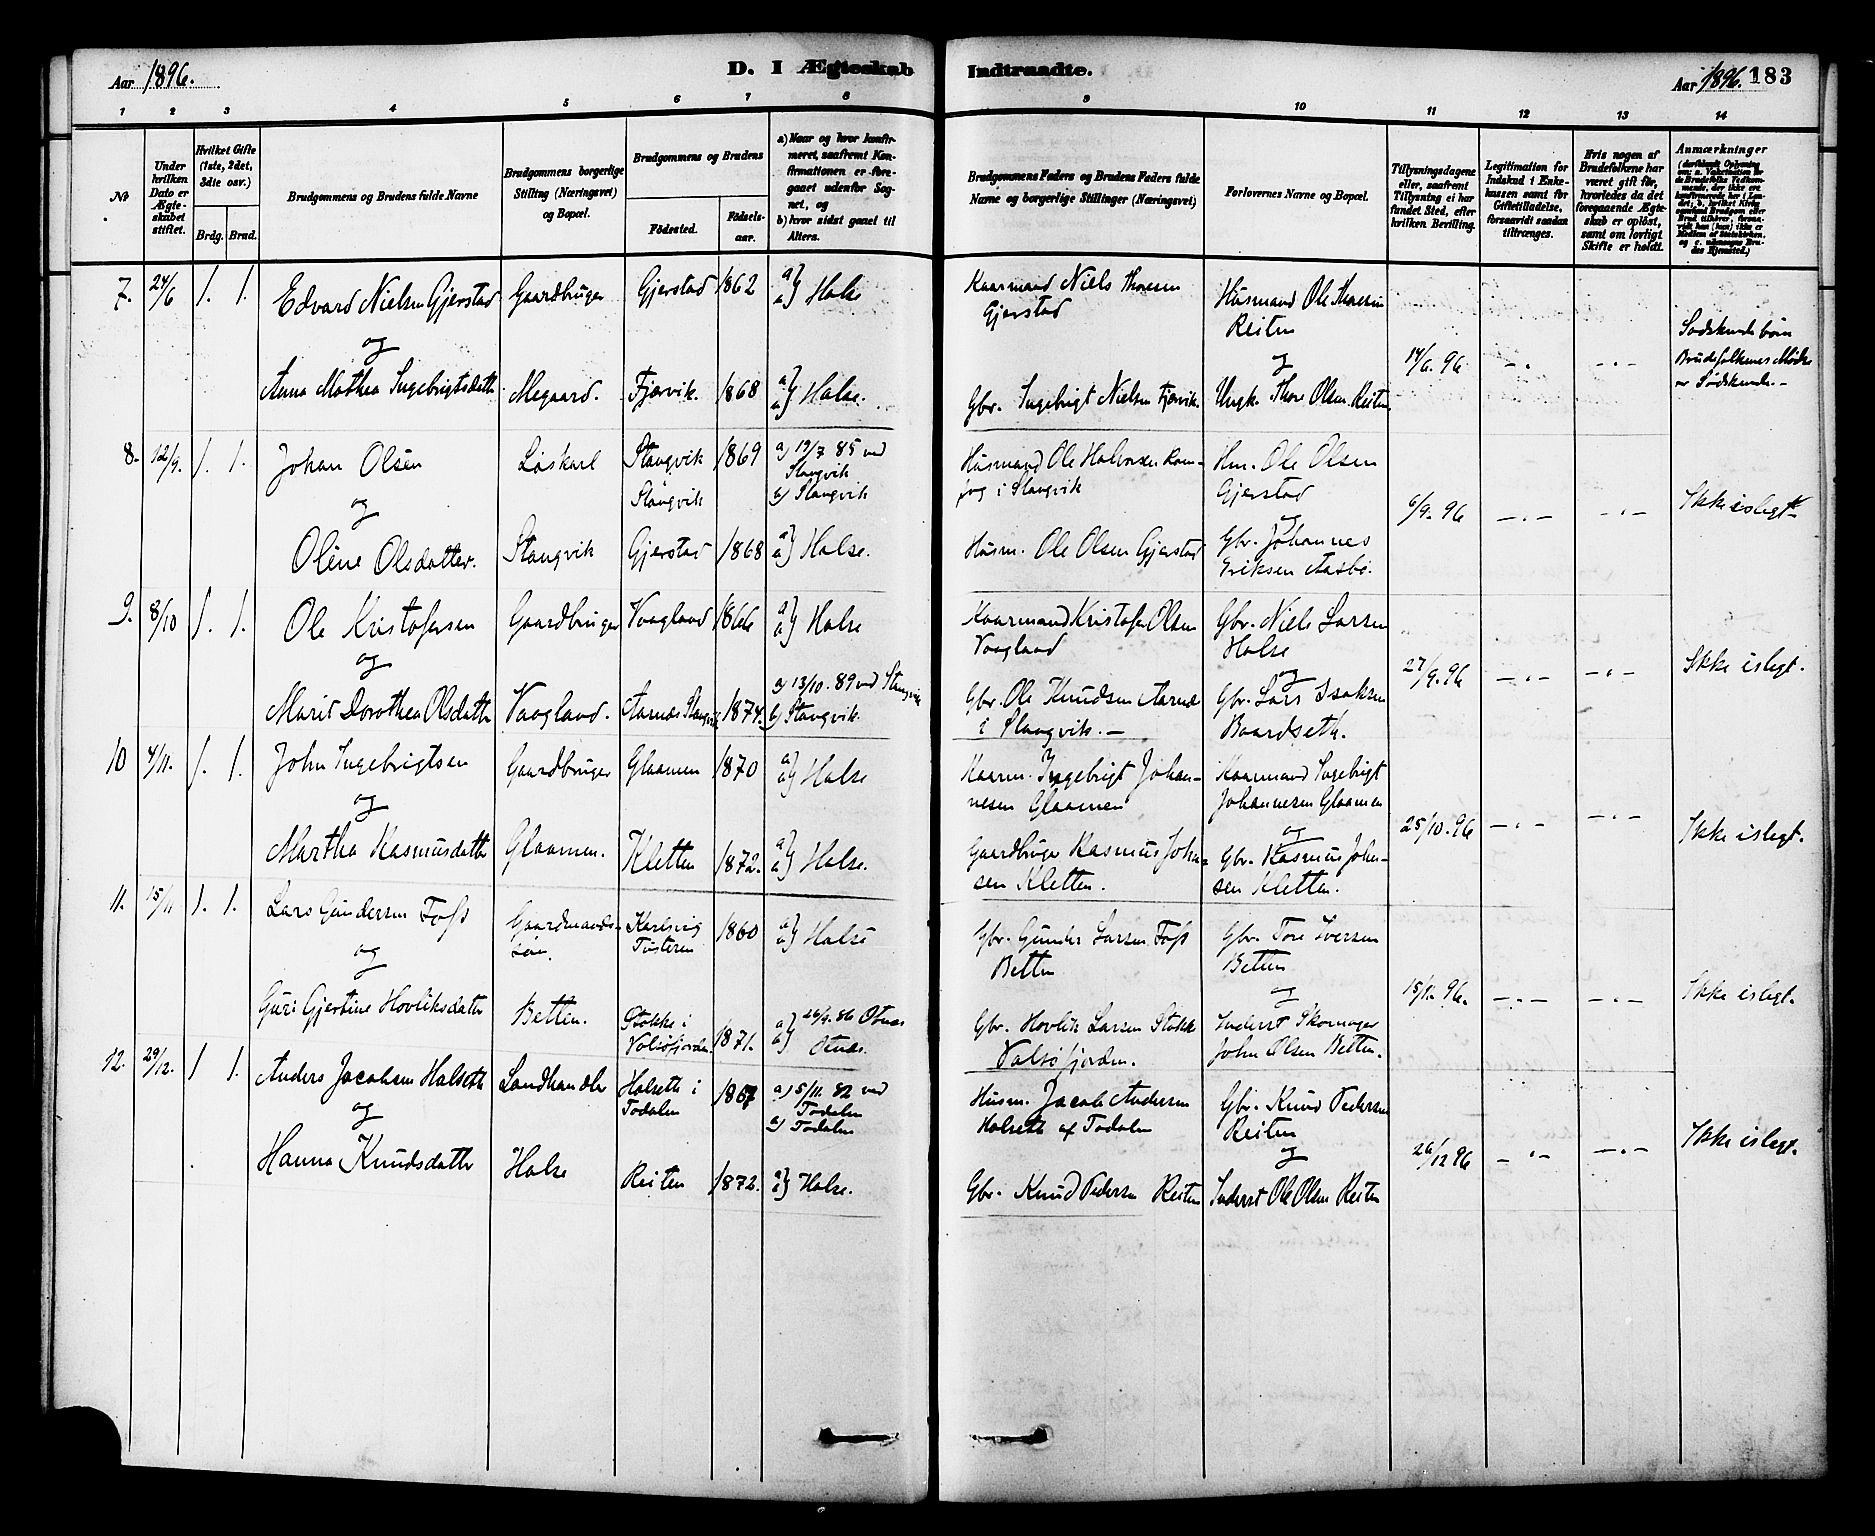 Aar 1896.
D. I Ægteskab Indtraadte.
Aar 1896. 183
1 2 3 4 5 6 7 8 9 10 11 12 13 14
№
Under hvilken Dato er Ægteskabet stiftet.
Hvilket Gifte (1ste, 2det, 3die osv.)
Brdg. Brud.
Brudgommens og Brudens fulde Navne
Brudgommens borgerlige Stilling (Næringsvei) og Bopæl.
Brudgommens og Brudens
Fødested.
Fødselsaar.
a) Naar og hvor konfirmeret, saafremt Konfirmationen er foregaaet udenfor Sognet, og
b) hvor sidst gaaet til Alters.
Brudgommens Faders og Brudens Faders fulde Navne og borgerlige Stillinger (Næringsvei)
Forlovernes Navne og Bopæl.
Tillysningsdagene eller, saafremt Tillysning ei har fundet Sted, efter hvilken Bevilling.
Legitimation for Indskud i Enkekassen samt for Giftetilladelse, forsaavidt saadan tiltrænges.
Hvis nogen af Brudefolkene har været gift før, hvorledes da det foregaaende Ægteskab er opløst, samt om lovligt Skifte er holdt.
Anmærkninger
7. 24/6 1. 1. Edvard Nielsen Gjerstad Gaardbruger Gjerstad 1862 a) b) Halse
Kaarmand Niels Thoresen Gjerstad
Husmand Ole Thoresen Reiten
og
Anna Mathea Ingebrigtsdatter Megaard. Fjærvik. 1868 a) b) Halse.
Gbr. Ingebrigt Nielsen Fjærvik.
og
Ungk. Thore Olsen Reiten
14/6. 96 -.- -.-
Sødskendebørn
Brudefolkenes Mødre er Sødskende.-
8. 12/9. 1. 1. Johan Olsen Løskarl Stangvik Stangvik 1869 a) 19/7 85 ved Stangvik b) Stangvik
Husmand Ole Halvorsen i Stangvik
Hm. Ole Olsen Gjerstad
og
Oline Olsdatter. Stangvik Gjerstad 1868 a) b) Halse.
Husm. Ole Olsen Gjerstad
og
Gbr. Johannes Eriksen Aasbø.
6/9. 96 -.- -.- Ikke islegt.
9. 8/10 1. 1. Ole Kristofersen Gaardbruger Vaagland 1866 a) b) Halse
Kaarmand Kristofer Olsen Vaagland
Gbr. Niels Larsen Halse
og
Marit Dorothea Olsdatter Vaagland. Aarnes Stangvik 1874. a) 13/10. 89 ved Stangvik b) Stangvik.
Gbr. Ole Knudsen Aarnes i Stangvik. -
og
Gbr. Lars Isaksen Baardseth.
27/9. 96 -.- -.- Ikke islegt.
10 4/11. 1. 1. John Ingebrigtsen Gaardbruger Glaamen 1870 a) b) Halse
Kaarm. Ingebrigt Johannesen Glaamen
Kaarmand Ingebrigt Johannesen Glaamen
og
Martha Rasmusdatter Glaamen. Kletten 1872. a) b) Halse.
Gaardbruger Rasmus Johnsen Kletten.
og
Gbr. Rasmus Johnsen Kletten.
25/10. 96 -.- -.- Ikke islegt.
11. 15/11 1. 1. Lars Gundersen Foss Gaardmandssøn. Karlsvig Tusteren 1860 a) b) Halse
Gbr. Gunder Larsen Foss Betten
Gbr. Tore Iversen Betten
og
Guri Gjertine Hovliksdatter Betten. Stokke i Valsøfjorden. 1871. a) b) 26/9. 86 Otnæs Otnæs.
Gbr. Hovlik Larsen Stokk Valsøfjorden.
og
Inderst Skomager John Olsen Betten.
15/11. 96. -.- -.- Ikke islegt.
12. 29/12. 1 1. Anders Jacobsen Halseth Landhandler Halseth i Todalen 1867 a) 5/11. 82 ved Todalen b) Todalen
Husm. Jacob Andersen Halseth af Todalen
Gbr. Knud Pedersen Reiten
og
Hanna Knudsdatter Halse Reiten 1872. a) b) Halse.
Gbr. Knud Pedersen Reiten
og
Inderst Ole Olsen Reiten
26/12 96 -.- -.- Ikke islegt.